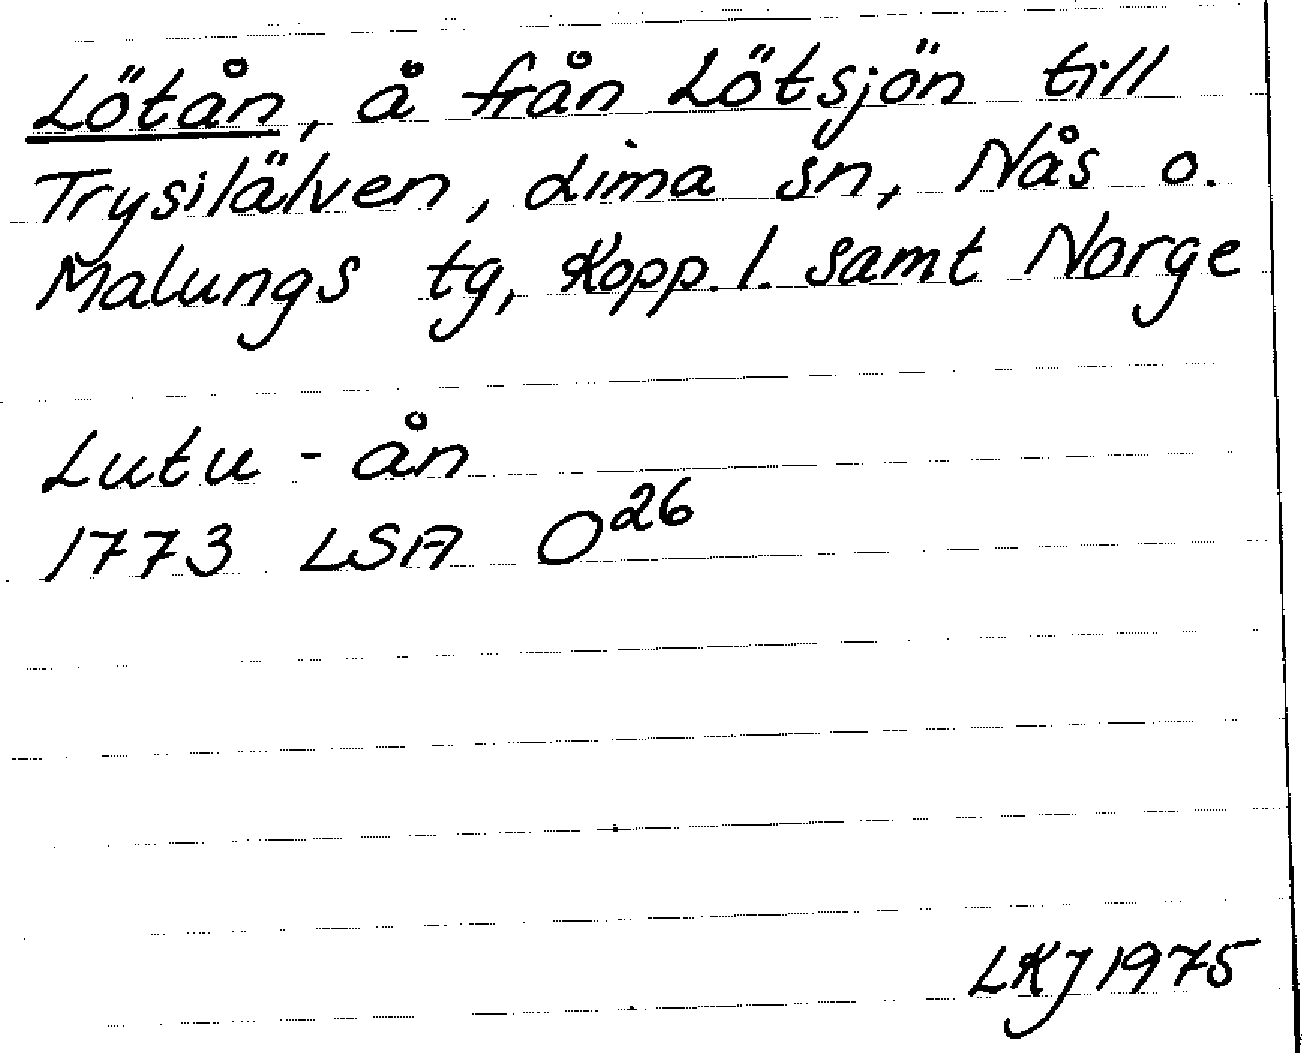 Lötån, å från Lötsjön till
Trysilälven, Lima sn, Nås o.
Malungs tg, Kopp. l. samt Norge
Lutu - ån
1773 LSA O26
LKJ 1975